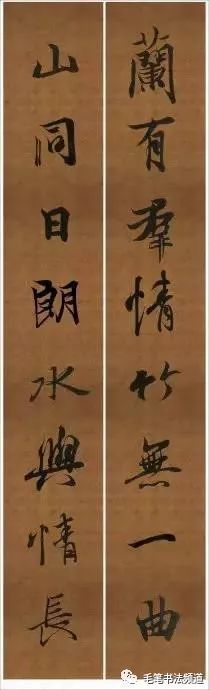 蘭有羣情竹無一曲
山同日朗水與情長
毛笔书法频道